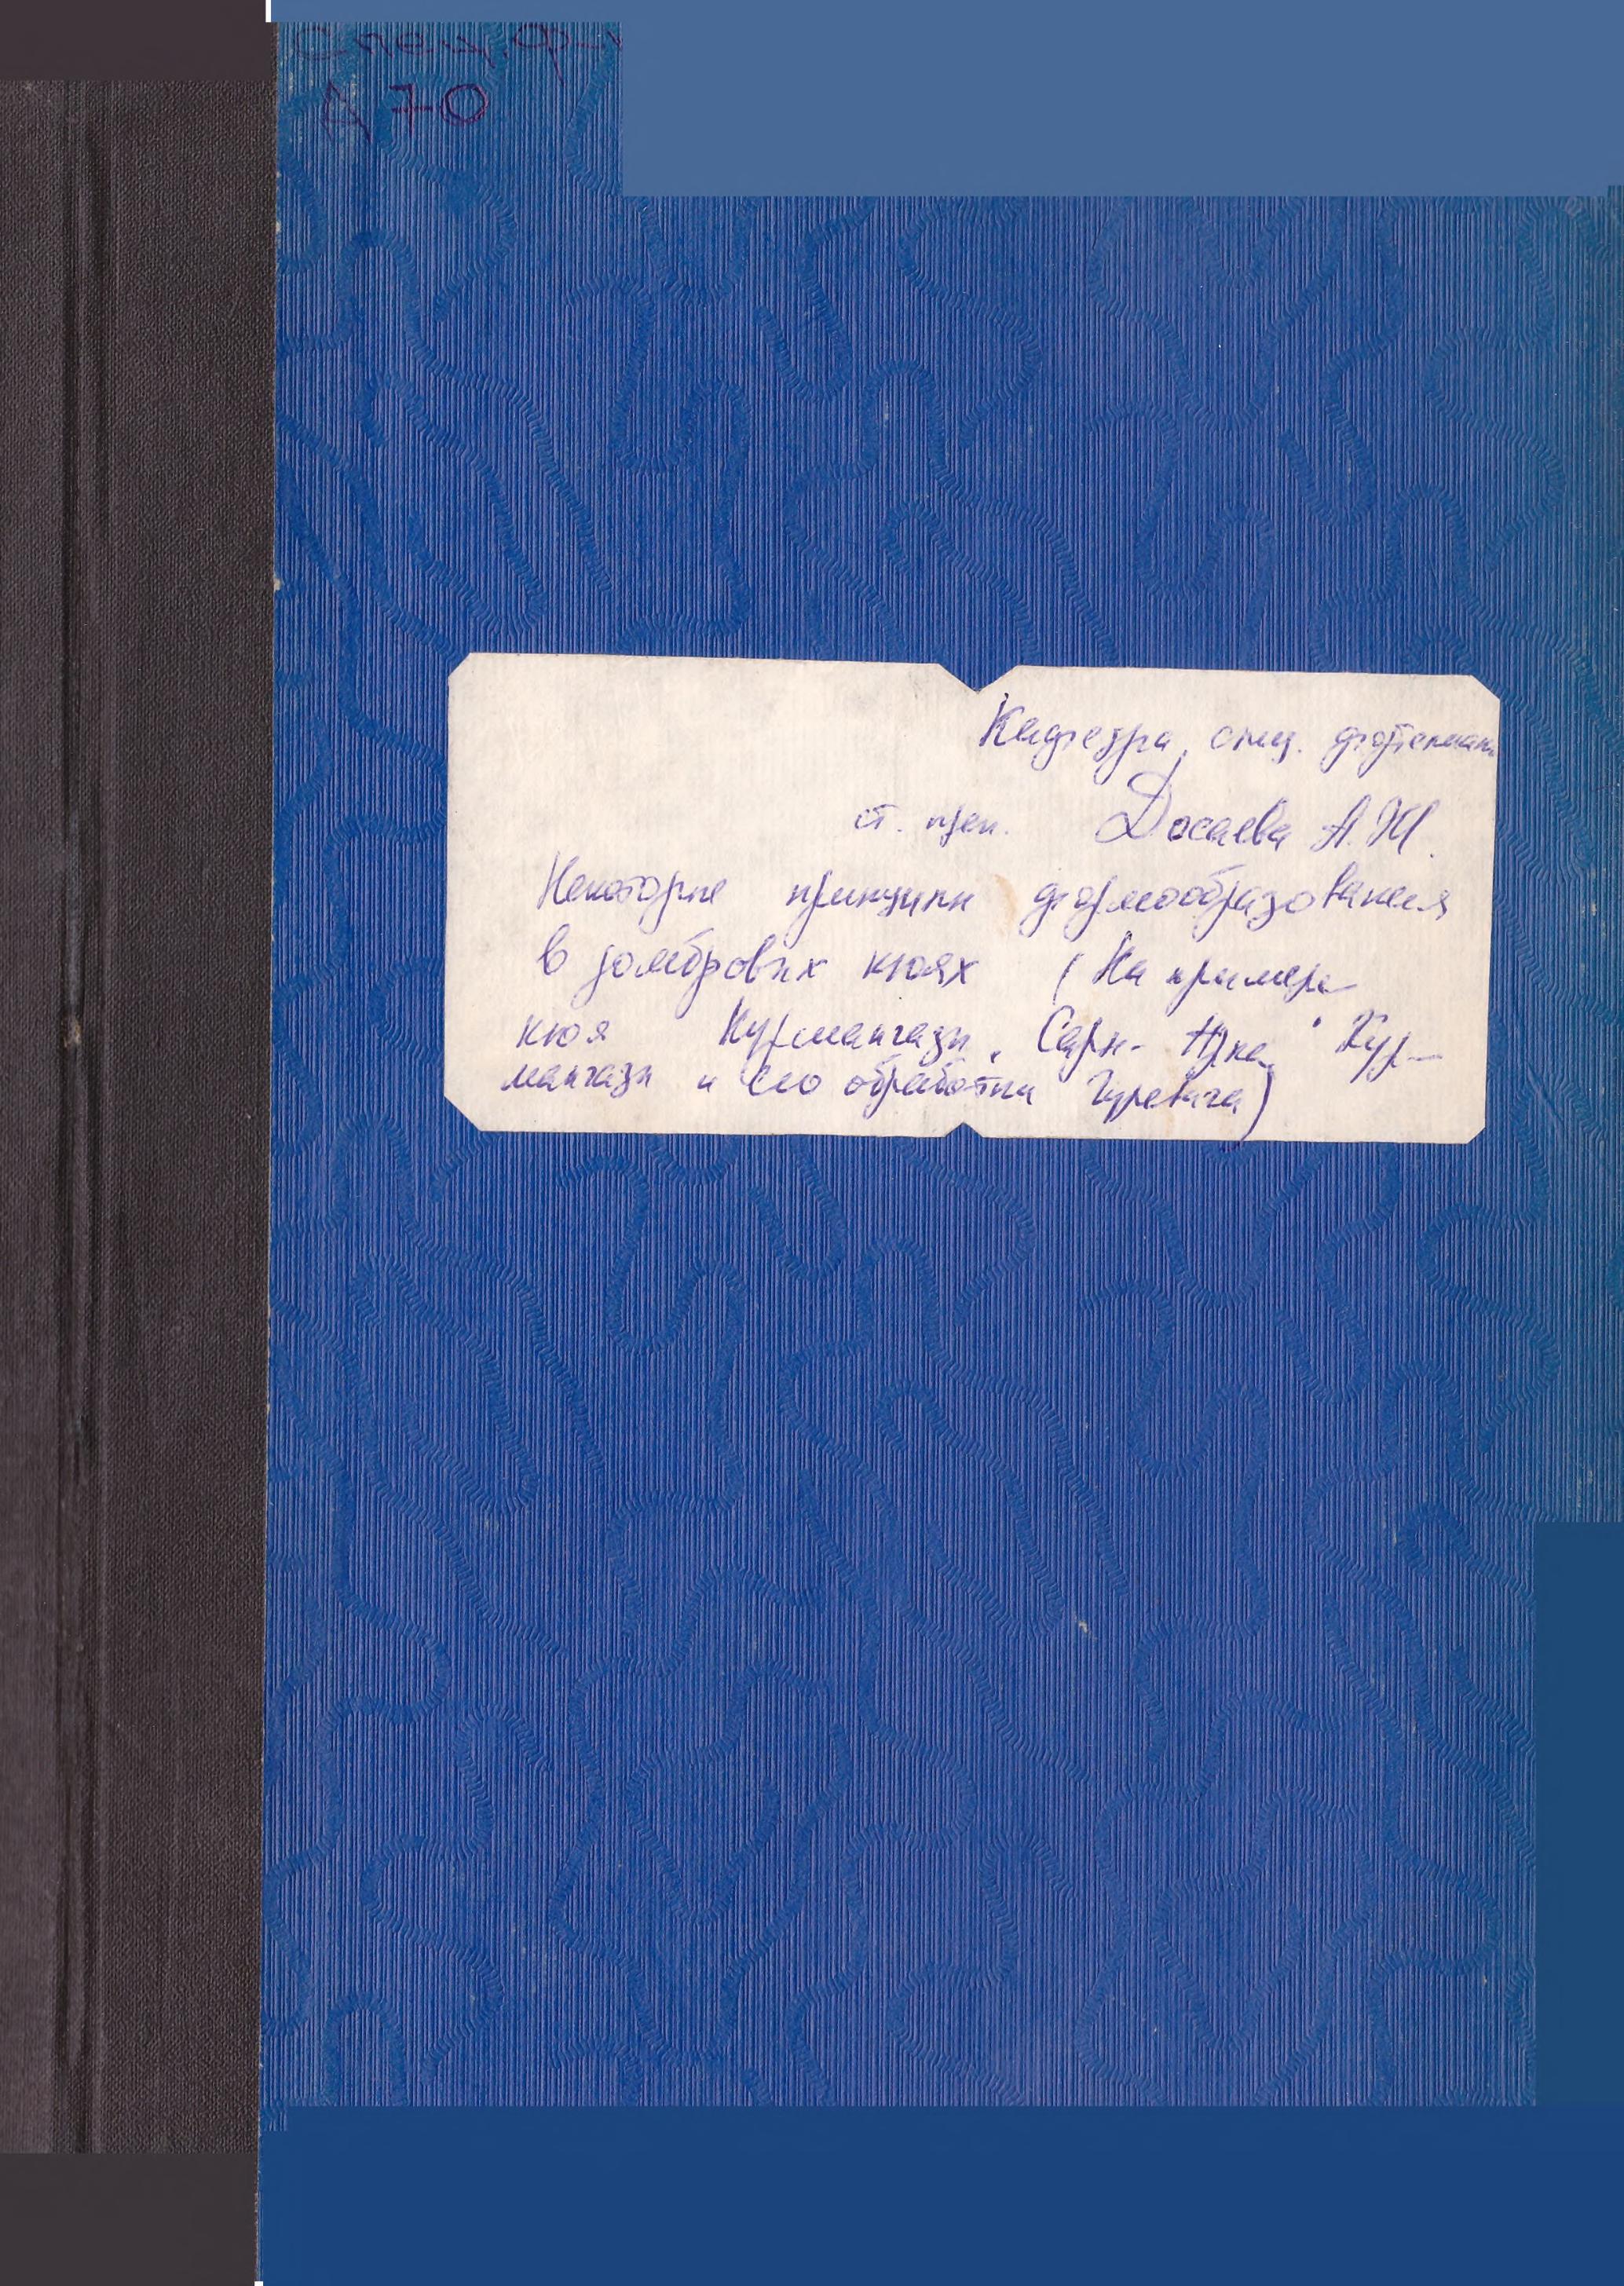 Спец. ф-
Д 70
Кафедра спец. фортепиано
ст. преп. Досаева А.Ж.
Некоторые принципы формообразования
в домбровых кюях (На примере
кюя Курмангазы "Сары-Арка" Кур-
мангазы и его обработки Гуревича)